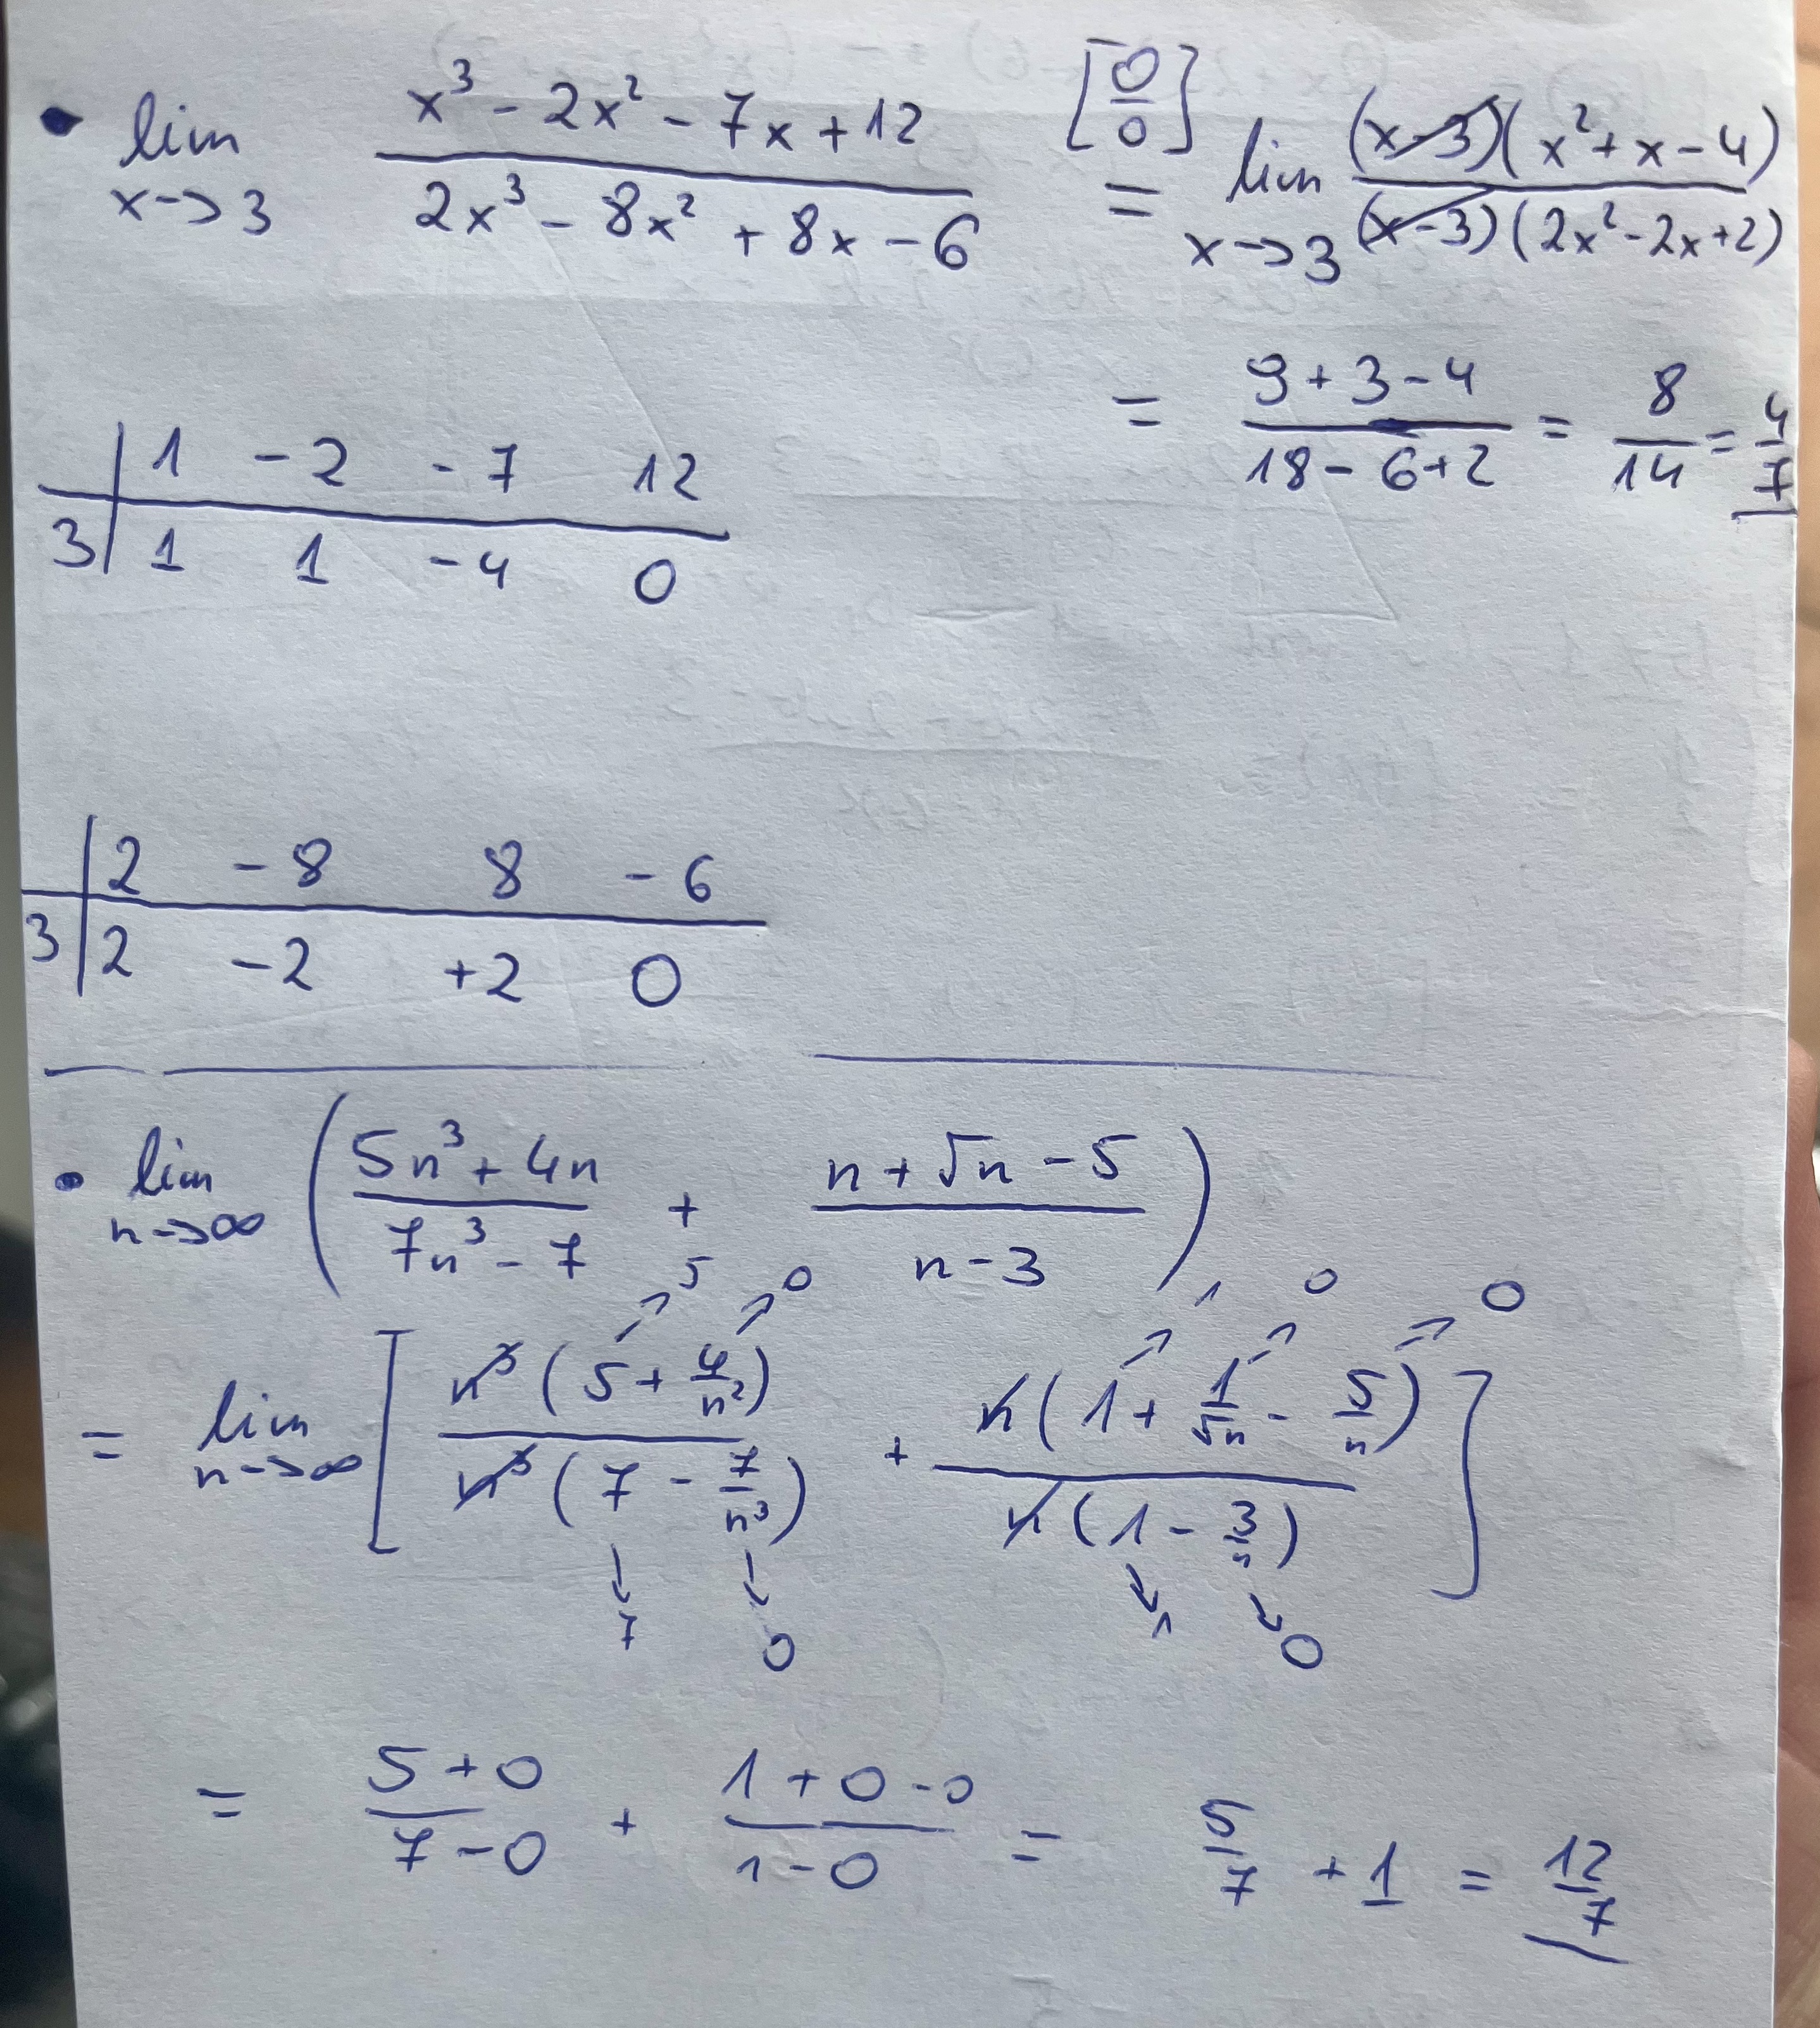 • lim x→3 (x³ - 2x² - 7x + 12)/(2x³ - 8x² + 8x - 6) =[0/0] lim x→3 ((x-3)(x² + x - 4))/((x-3)(2x² - 2x + 2))
= (9 + 3 - 4)/(18 - 6 + 2) = 8/14 = 4/7
| 1 -2 -7 12
3 | 1 1 -4 0
| 2 -8 8 -6
3 | 2 -2 +2 0
• lim n→∞ ((5n³ + 4n)/(7n³ - 7) + (n + √n - 5)/(n - 3))
5 0 1 0 0
= lim n→∞ [(n³(5 + 4/n²))/(n³(7 - 7/n³)) + (n(1 + 1/√n - 5/n))/(n(1 - 3/n))]
7 0 1 0
= (5 + 0)/(7 - 0) + (1 + 0 - 0)/(1 - 0) = 5/7 + 1 = 12/7